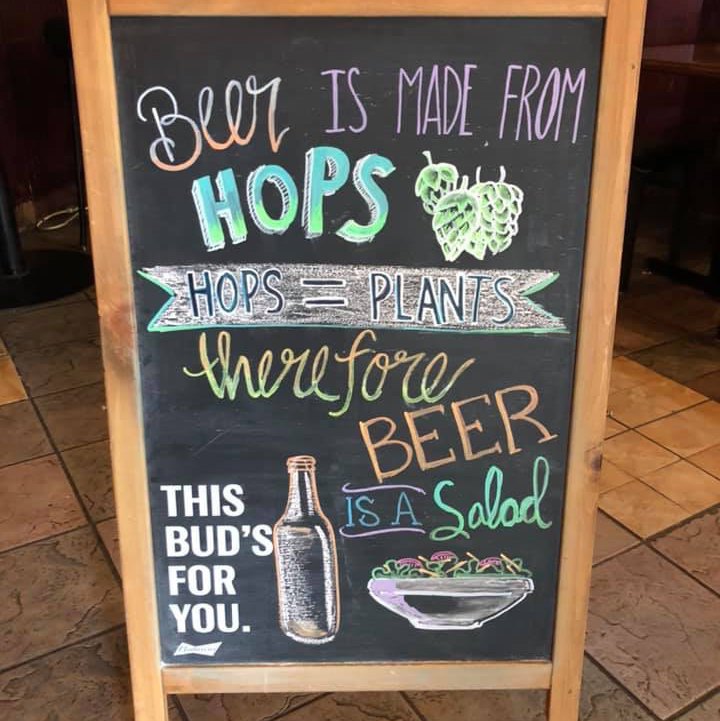 Beer IS MADE FROM
HOPS
HOPS = PLANTS
therefore
BEER
IS A Salad
THIS
BUD'S
FOR
YOU.
Budweiser